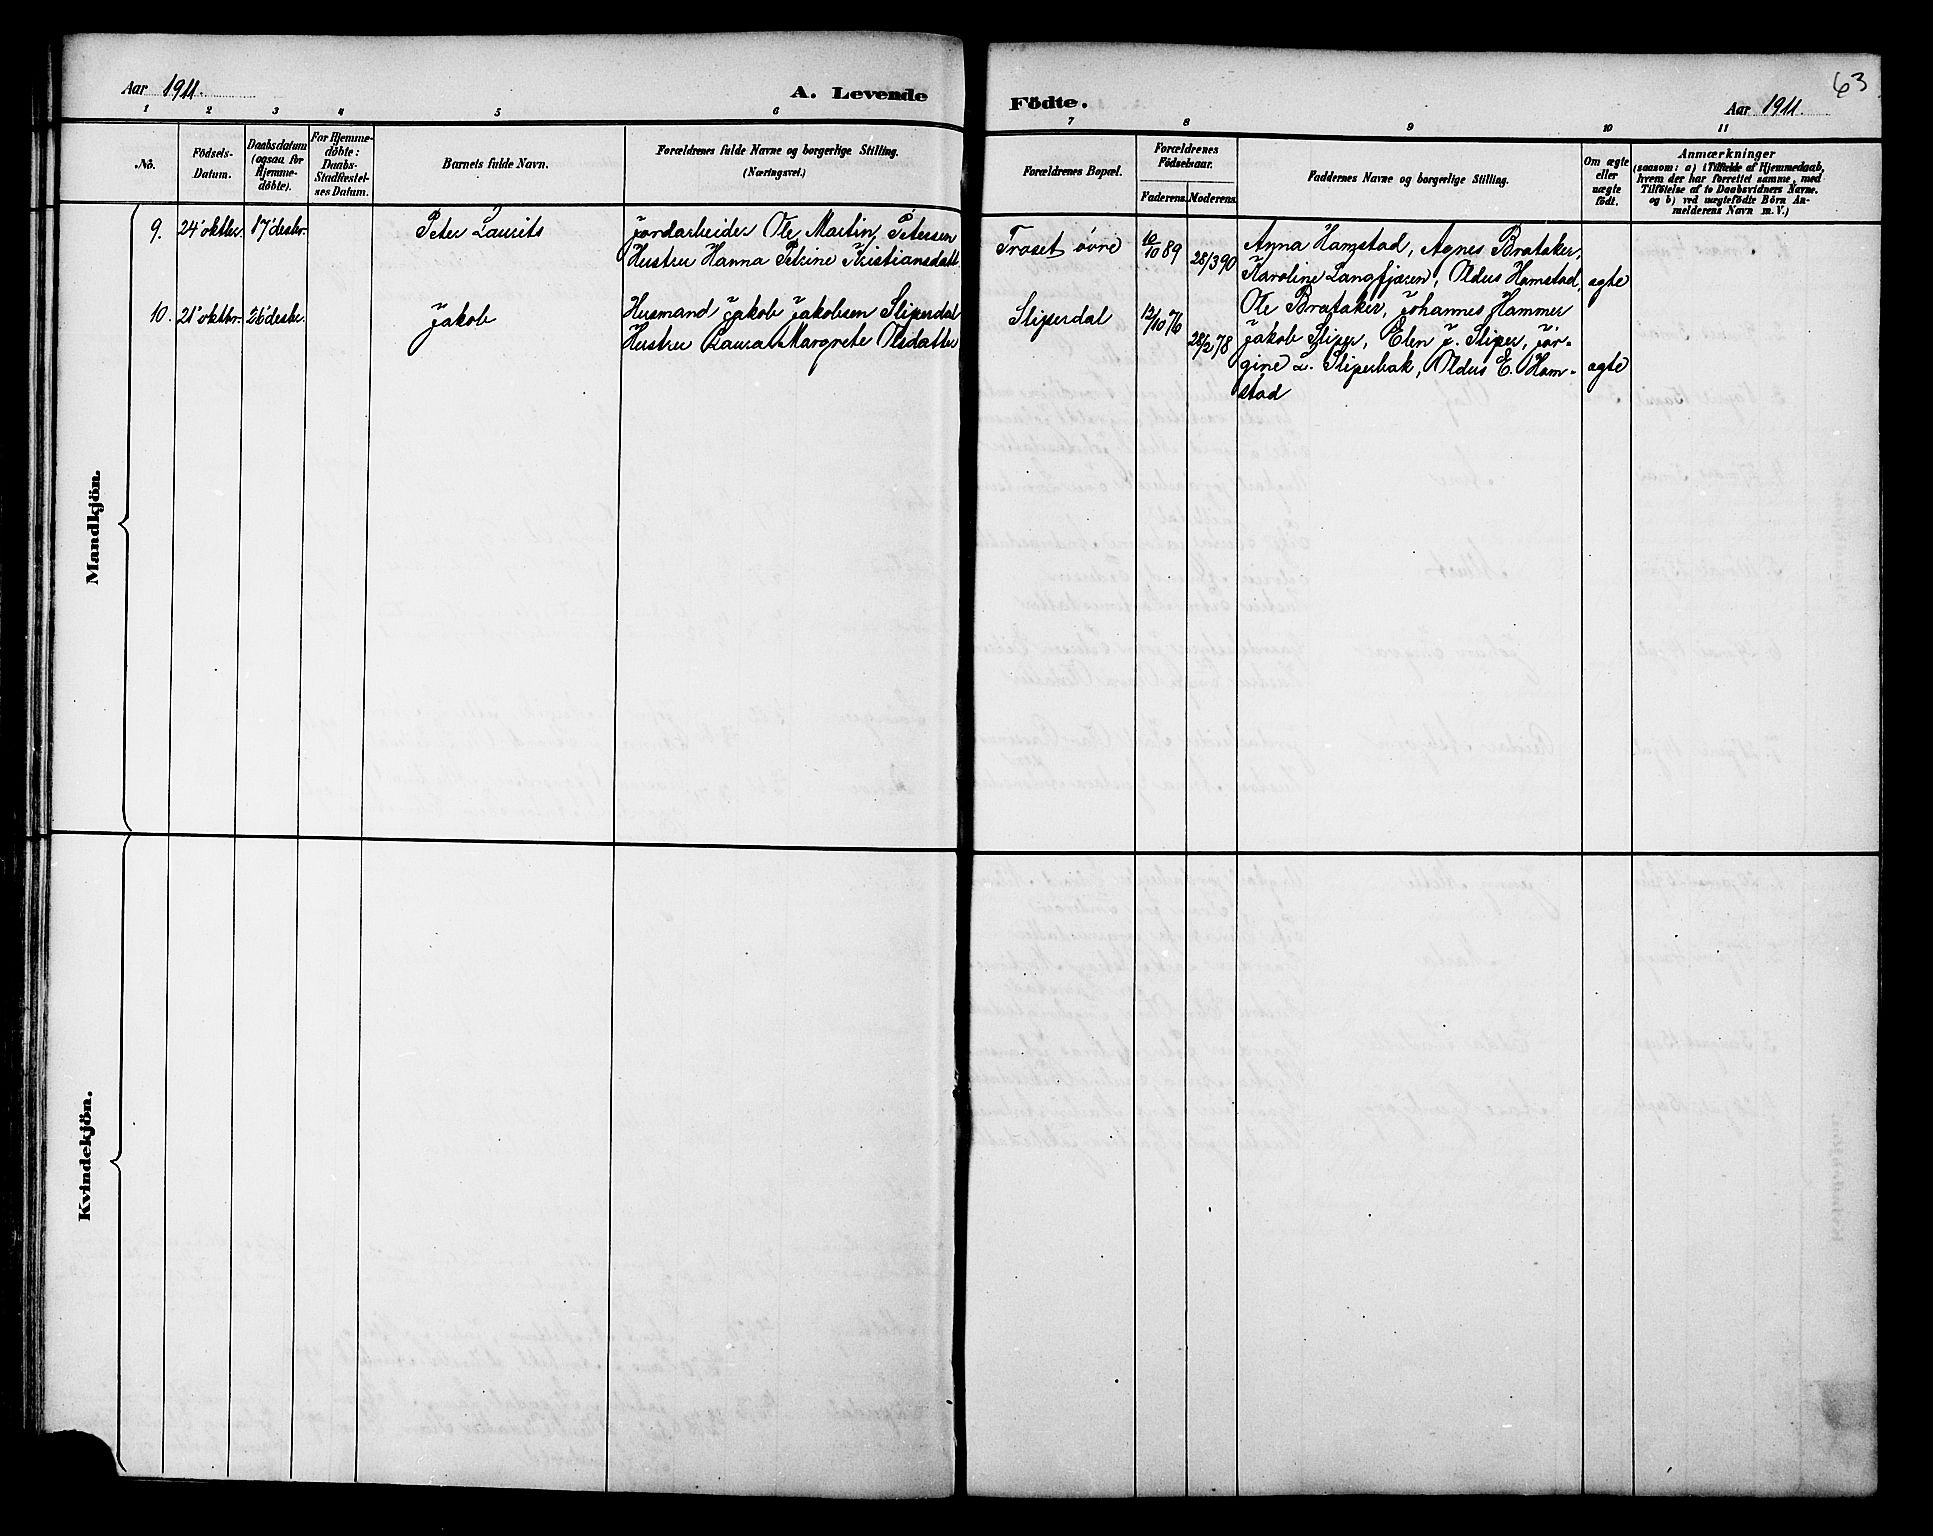 Aar 1911.
A. Levende
Födte.
63
Aar 1911.
1 2 3 4 5 6 7 8 9 10 11
No.
Födsels-
Datum.
Daabsdatum
(ogsaa for
Hjemme-
döbte).
For Hjemme-
döbte:
Daabs-
Stadfæstel-
ses Datum.
Barnets fulde Navn.
Forældrenes fulde Navne og borgerlige Stilling.
(Næringsvei.)
Forældrenes Bopæl.
Forældrenes
Födselsaar.
Faderens. Moderens.
Faddernes Navne og borgerlige Stilling.
Om ægte
eller
uægte
födt.
Anmærkninger
(saasom: a) i Tilfælde af Hjemmedaab,
hvem der har forrettet samme, med
Tilföielse af to Daabsvidners Navne.
og b) ved uægtefödte Börn An-
melderens Navn m. V.)
Mandkjön.
9. 24' oktbr. 17' desbr. Peter Laurits Jordarbeider Ole Martin Petersen Troset övre 10/10 89 Anna Hamstad, Agnes Brataker,
Hustru Hanna Petrine Kristiansdatt. 28/3 90 Karoline Langfjæren, Oldus Hamstad, ægte
Ole Brataker, Johannes Hammer
10. 21' oktbr. 26' desbr. Jakob Husmand Jakob Jakobsen Sliperdal Sliperdal 12/10 76
Hustru Laura Margrete Olsdatter 28/2 78 Jakob Sliper, Elen J. Sliper, Jör-
gine L. Sliperbak, Oldus E. Ham- ægte
stad
Kvindekjön.